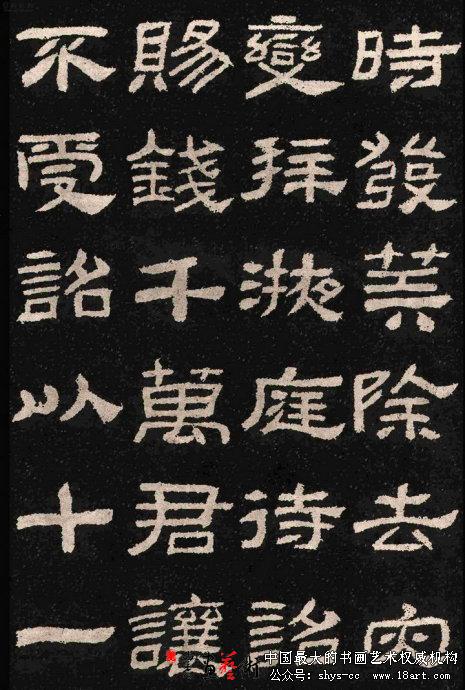 時發筭除去灾
變拜掖庭待詔
賜錢千萬君讓
不受詔以十一
中国最大的书画艺术权威机构
公众号: shys-cc www.18art.com